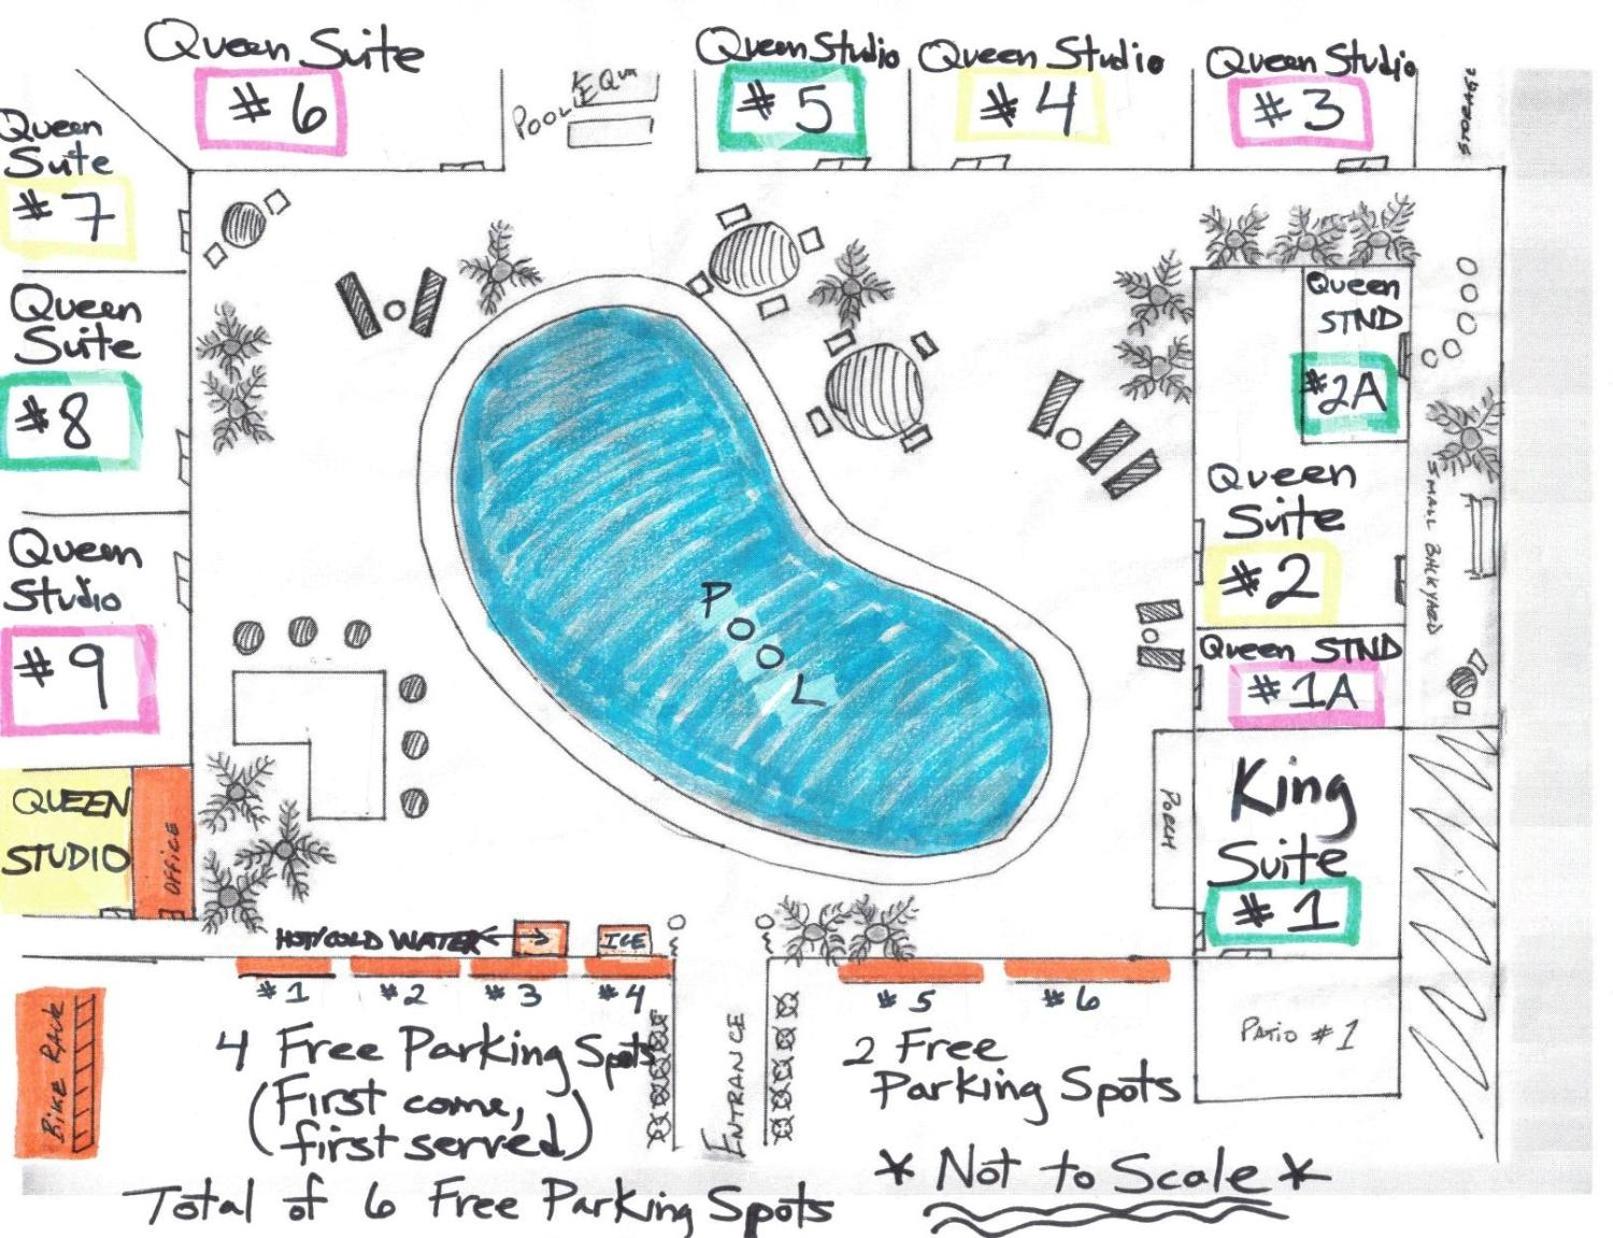 Queen Suite
#6
POOL EQU
Queen Studio
#5
Queen Studio
#4
Queen Studio
#3
STORAGE
Queen
Sute
#7
Queen
Suite
#8
Queen
Studio
#9
QUEEN
STUDIO
OFFICE
Queen
STND
#2A
Queen
Suite
#2
SMALL BACKYARD
Queen STND
#1A
King
Suite
#1
PORCH
P
O
O
L
HOT/COLD WATER
ICE
#1
#2
#3
#4
#5
#6
Bike Rack
4 Free Parking Spots
(First come,
first served)
ENTRANCE
2 Free
Parking Spots
Patio #1
Total of 6 Free Parking Spots
* Not to Scale *